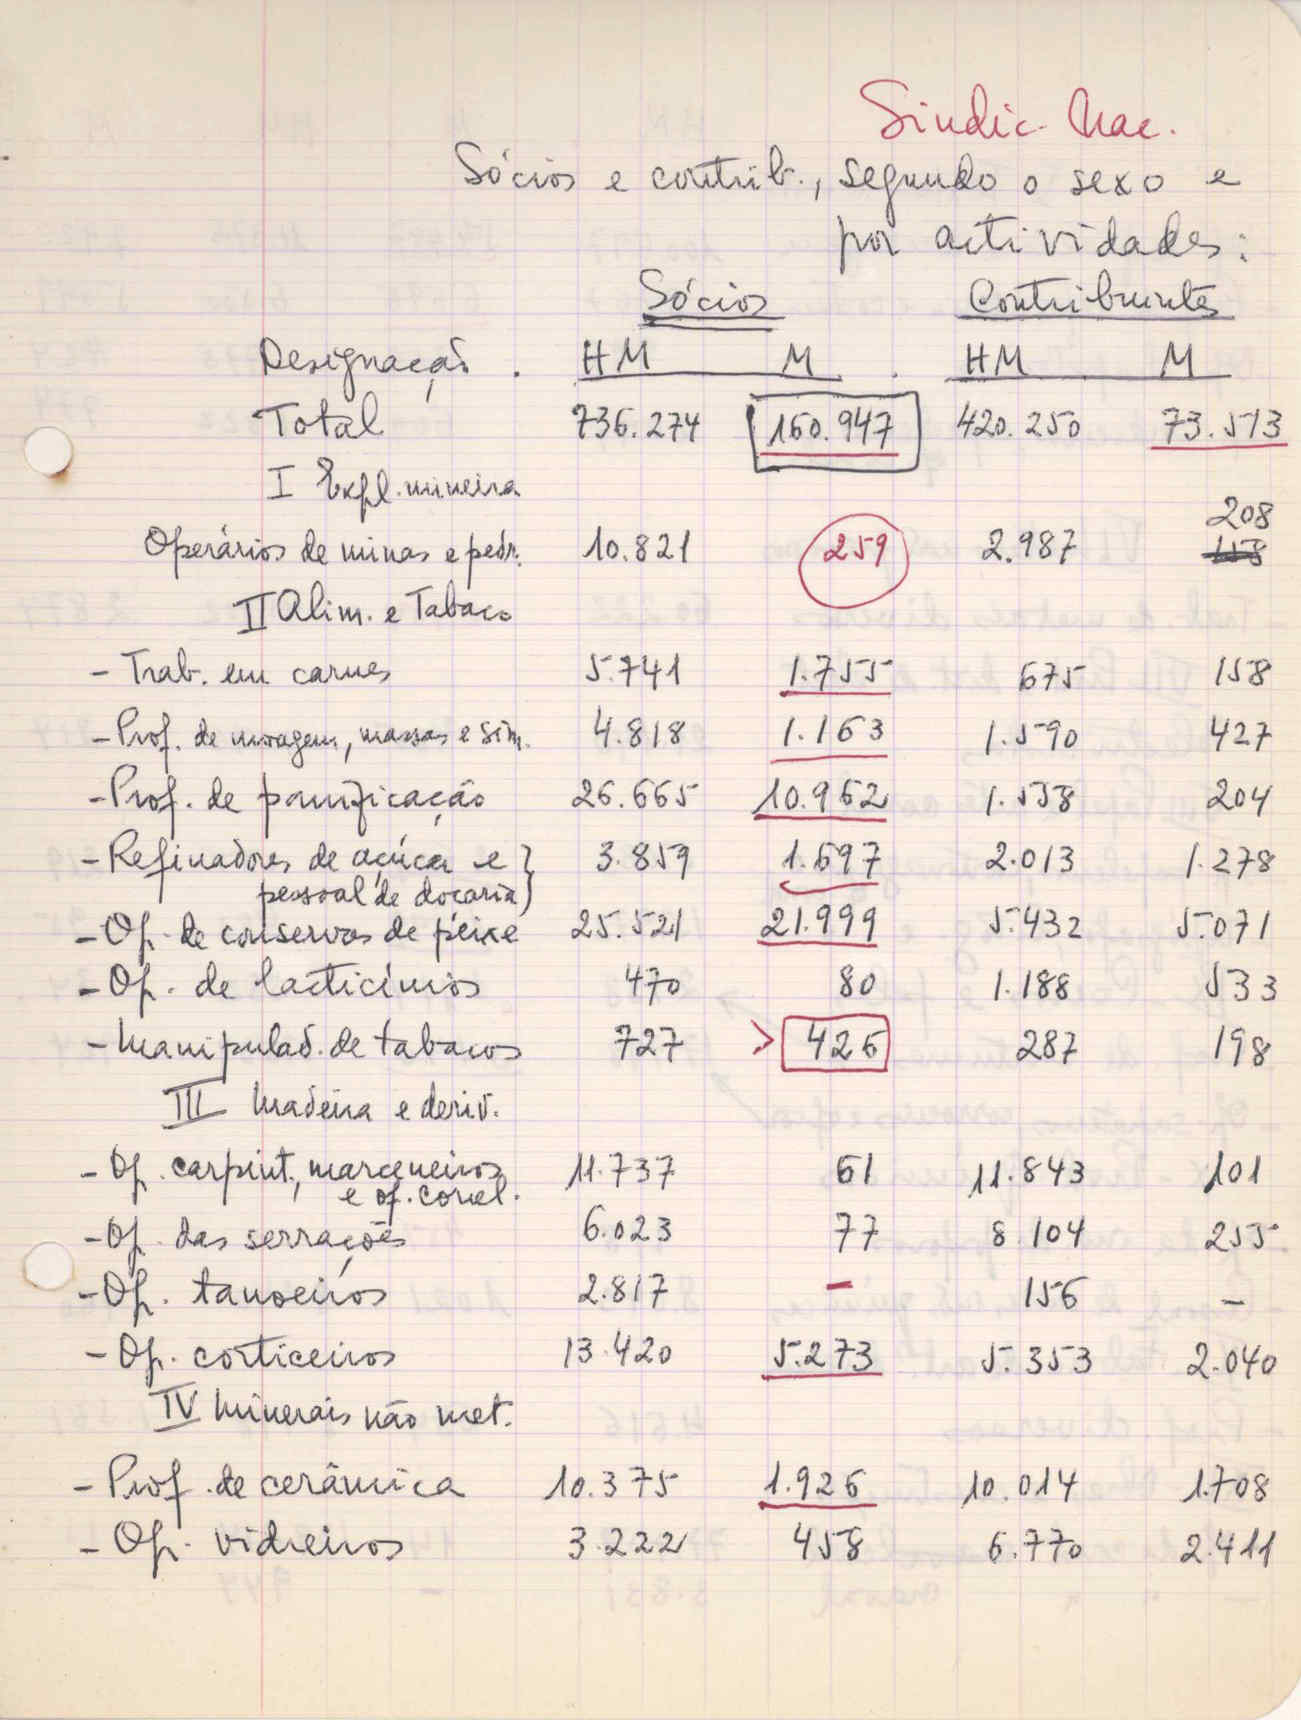 Sindic. Nac.
Sócios e contrib., segundo o sexo e
por actividades:
Sócios Contribuintes
Designação . HM M . HM M
Total 736.274 160.947 420.250 73.513
I Expl. mineira
208
Operários de minas e pedr. 10.821 259 2.987 158
II Alim. e Tabaco
- Trab. em carnes 5.741 1.755 675 158
- Prof. de moagem, massas e sim. 4.818 1.163 1.590 427
- Prof. de panificação 26.665 10.962 1.558 204
- Refinadores de açúcar e } 3.859 1.697 2.013 1.278
pessoal de doçaria }
- Op. de conservas de peixe 25.521 21.999 5.432 5.071
- Op. de lacticínios 470 80 1.188 533
- Manipulad. de tabacos 727 > 426 287 198
III Madeira e deriv.
- Op. carpint., marceneiros 11.737 61 11.843 101
e of. correl.
- Op. das serrações 6.023 77 8.104 255
- Op. tanoeiros 2.817 - 156 -
- Op. corticeiros 13.420 5.273 5.353 2.040
IV Minerais não met.
- Prof. de cerâmica 10.375 1.926 10.014 1.708
- Op. vidreiros 3.222 458 6.770 2.411